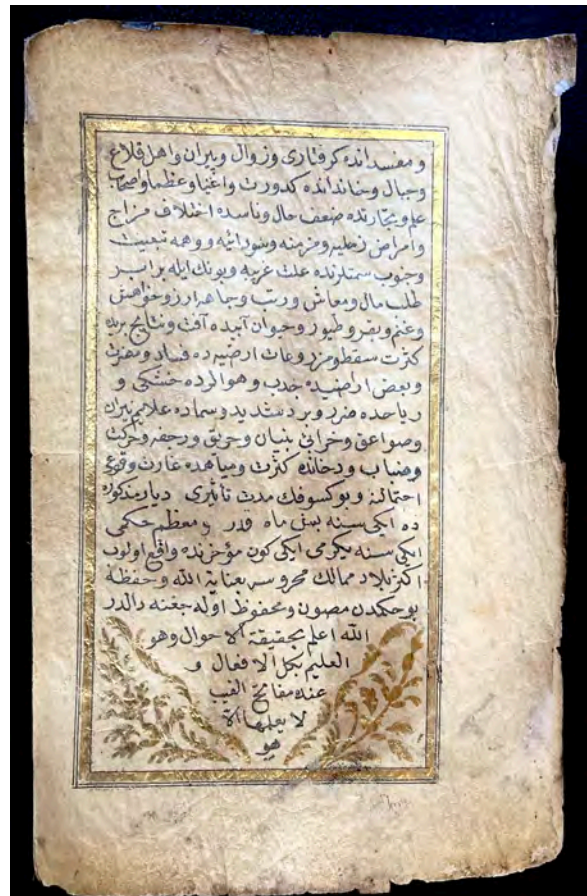 و مفسد انده كرفتاری و زوال و پیران و اهل قلاع
و جبال و خانداندہ كدورت و اغنیا و عظما و اصحاب
علم و تجارنده ضعف حال و ناسده اختلاف مزاج
و امراض زحلیه و مزمنه و سودائیه و وهمه تبعیت
و جنوب سمتلرنده علت غریبه و بونك ایله برابر
طلب مال و معاش و رتب و جاهه ارزو خواهش
و غنم و بقر و طیور و حیوان آبیده آفت و نتایج برده
كثرت سقط و مزروعات ارضیه ده فساد و مضرت
و بعض اراضیده جدب و هوالرده خشكی و
ریاحده ضرر و برد شدید و سماده علایم نیران
و صواعق و خرابئ بنیان و حریق و رجفه و حركت
و ضباب و دخانده كثرت و میاهده غارت وقوعی
احتمالنه و بو كسوفك مدت تاثیری دیار مذكوره
ده ایكی سنه بش ماه قدر و معظم حكمی
ایكی سنه یكرمی ایكی كون مؤخرنده واقع اولوب
اكثر بلاد ممالك محروسه بعنایة الله و حفظه
بو حكمدن مصون و محفوظ اوله جغنه دالدر
الله اعلم بحقیقة الاحوال وهو
العلیم بكل الافعال و
عنده مفاتح الغیب
لا یعلمها الا
هو